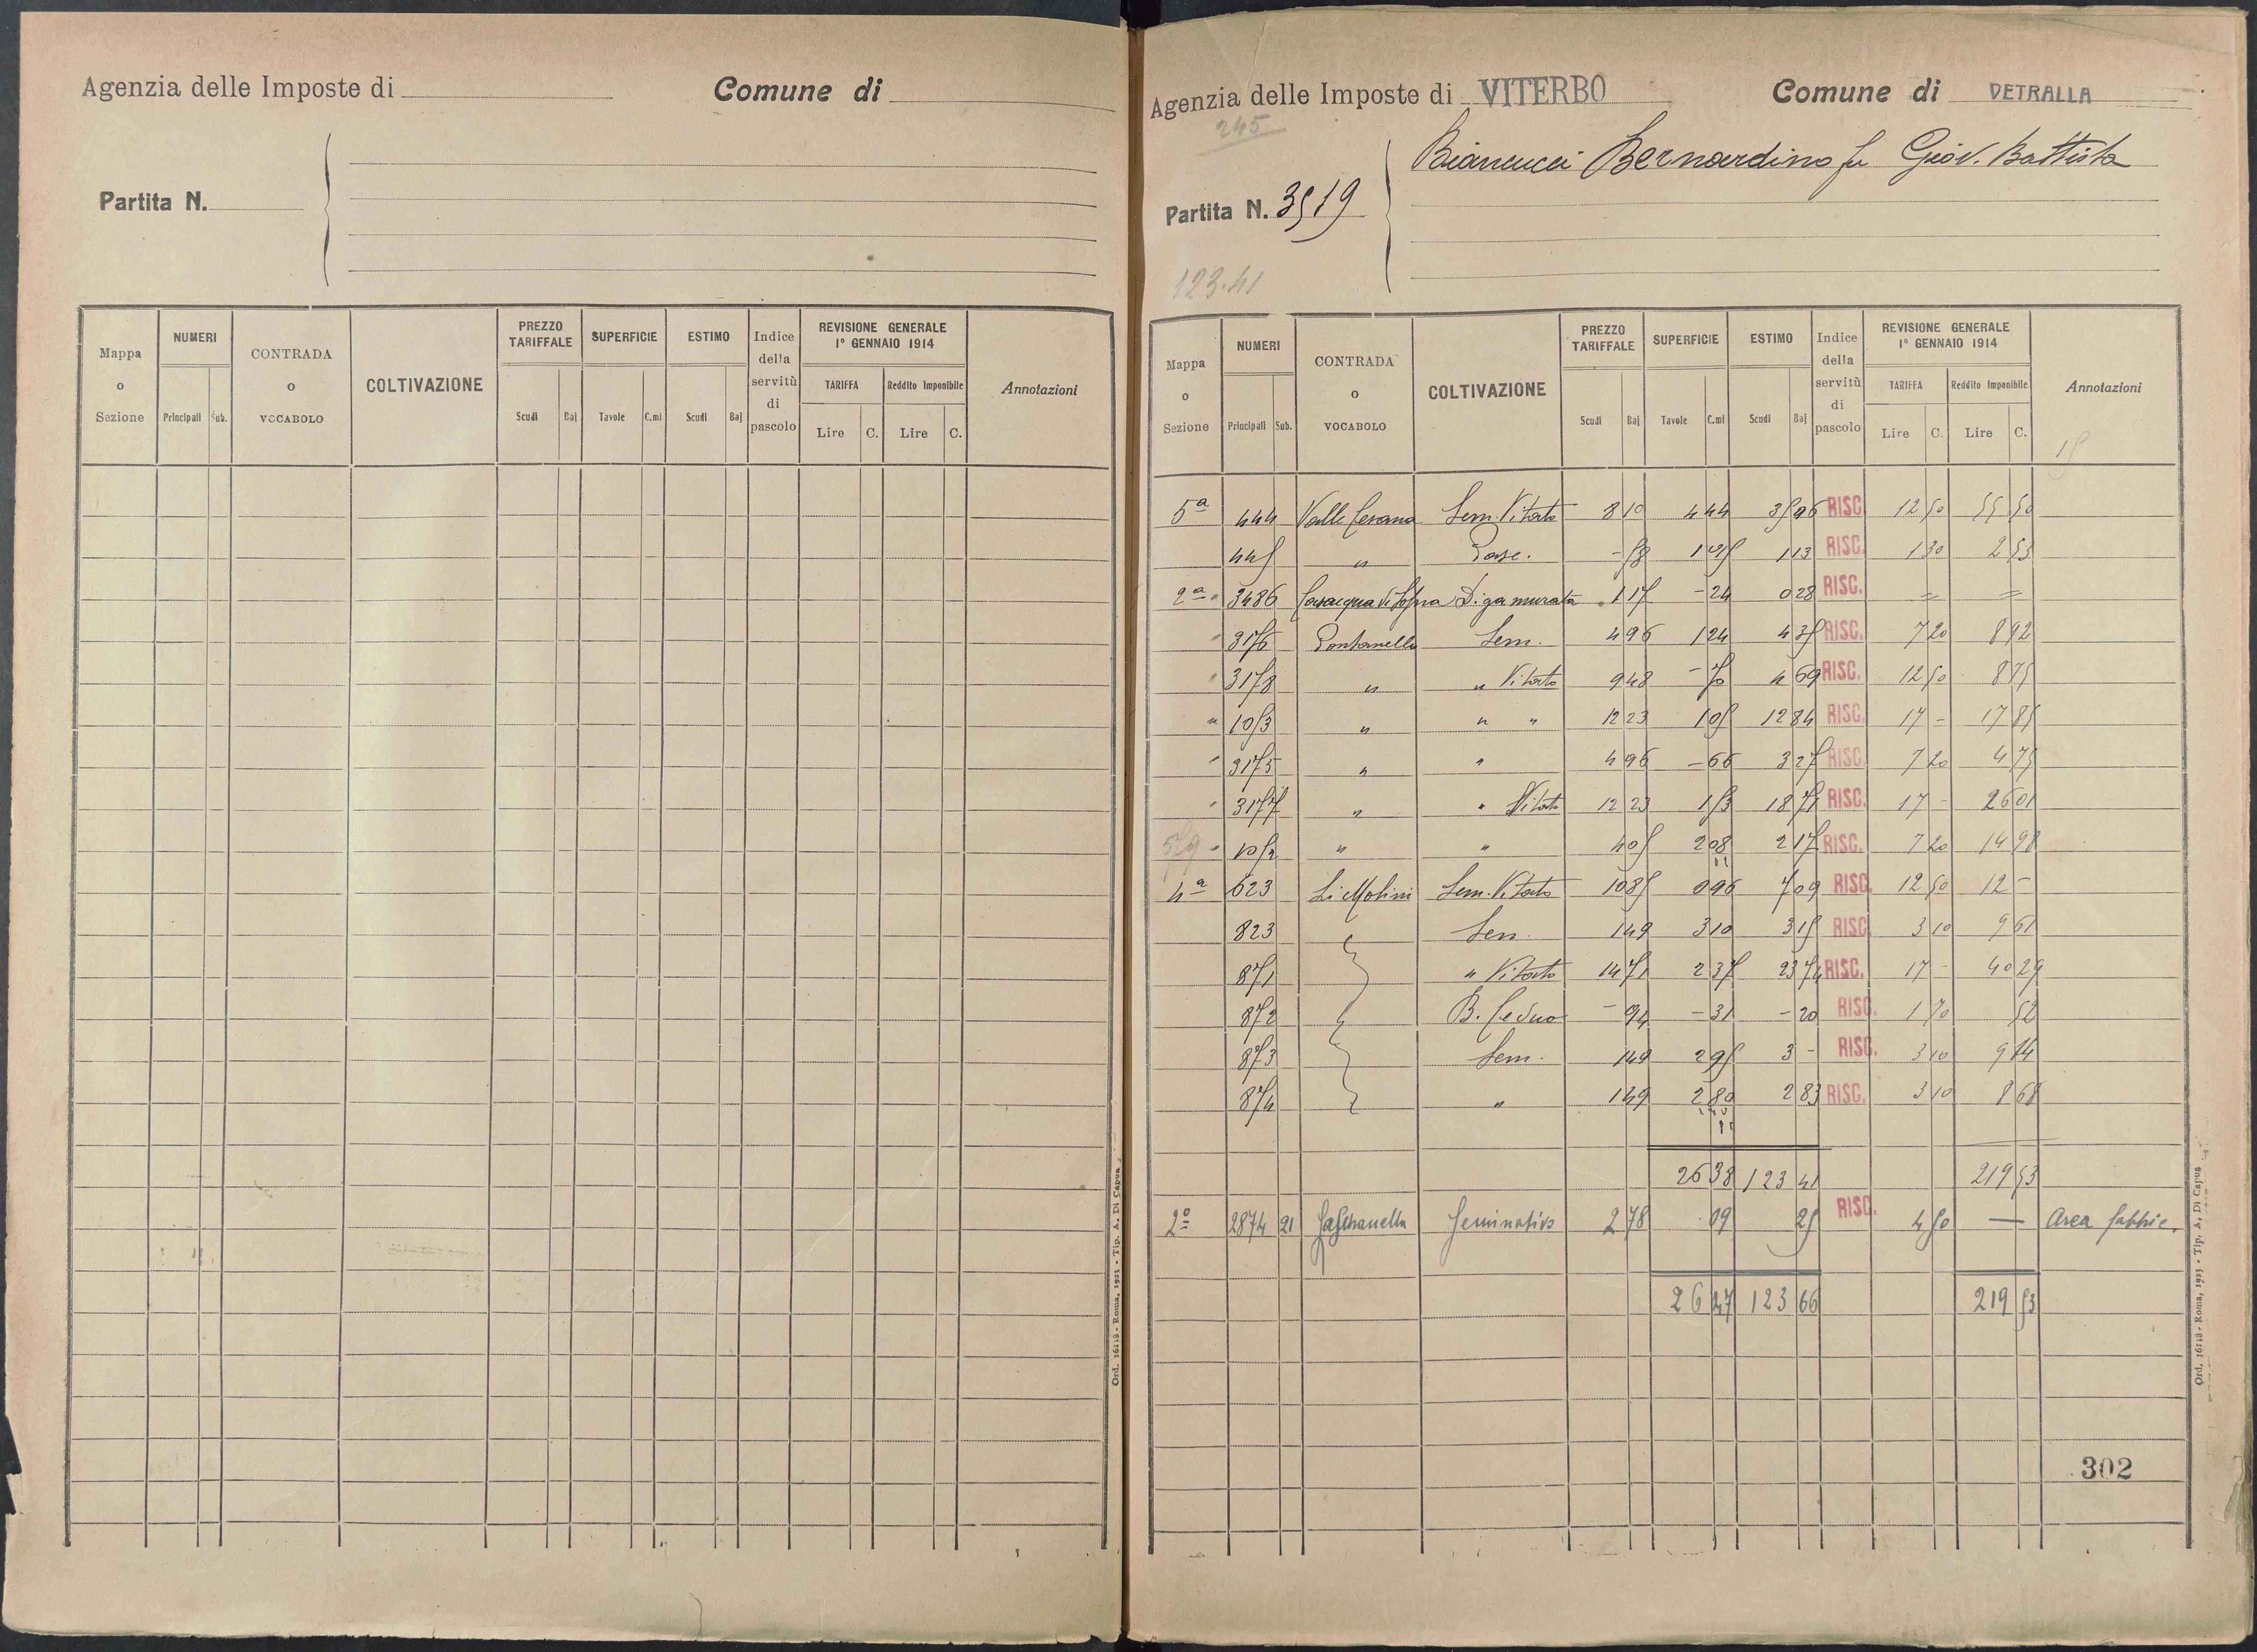 Agenzia delle Imposte di
Comune di
Partita N.
Mappa o Sezione | NUMERI Principali Sub. | CONTRADA o VOCABOLO | COLTIVAZIONE | PREZZO TARIFFALE Scudi Baj | SUPERFICIE Tavole C.mi | ESTIMO Scudi Baj | Indice della servitù di pascolo | REVISIONE GENERALE 1° GENNAIO 1914 TARIFFA Lire C. Reddito Imponibile Lire C. | Annotazioni
Ord. 16118 - Roma, 1923 - Tip. A. Di Capua
Agenzia delle Imposte di VITERBO
Comune di VETRALLA
245
Biancucci Bernardino fu Giov. Battista
Partita N. 3519
123.41
Mappa o Sezione | NUMERI Principali Sub. | CONTRADA o VOCABOLO | COLTIVAZIONE | PREZZO TARIFFALE Scudi Baj | SUPERFICIE Tavole C.mi | ESTIMO Scudi Baj | Indice della servitù di pascolo | REVISIONE GENERALE 1° GENNAIO 1914 TARIFFA Lire C. Reddito Imponibile Lire C. | Annotazioni
15
5ª 444 Valle Cesana Sem. Vitato 8 10 4 44 35 96 RISC. 12 50 55 50
445 " Pasc. - 58 1 95 1 13 RISC. 1 30 2 53
2ª 3486 di Sopra Diga murata 1 17 - 24 0 28 RISC. = =
3176 Fontanella Sem. 4 96 1 24 RISC. 7 20 8 92
3178 " " Vitato 9 48 - 70 RISC. 12 50 8 75
" 1053 " " " 12 23 1 05 12 84 RISC. 17 - 17 85
3175 " " 4 96 - 66 3 27 RISC. 7 20 4 75
3177 " " Vitato 12 23 1 53 18 71 RISC. 17 - 26 01
1052 " " 2 08 2 17 RISC. 7 20 14 98
4ª 623 Li Molini Sem. Vitato 10 85 0 96 7 09 RISC. 12 50 12 -
823 Sem. 1 49 3 10 3 15 RISC. 3 10 9 61
871 " Vitato 14 71 2 37 23 74 RISC. 17 - 40 29
872 B. Ceduo - 94 - 31 - 20 RISC. 1 70 52
873 Sem. 1 49 2 95 3 - RISC. 3 10 9 14
874 " 1 49 2 80 2 83 RISC. 3 10 8 68
26 38 123 41 219 53
2ª 2874 21 Seminativo 2 78 09 25 RISC. 4 50 — Area fabbric.
26 47 123 66 219 53
302
Ord. 16118 - Roma, 1923 - Tip. A. Di Capua